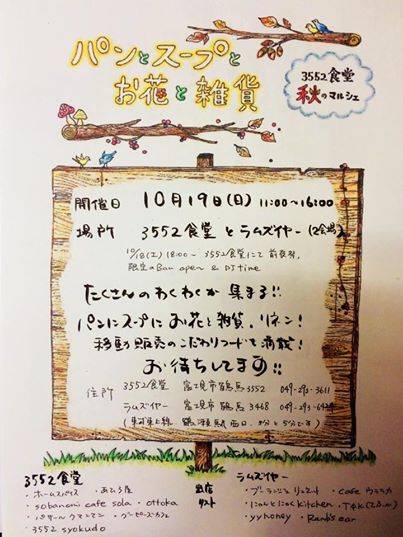 パンとスープと
お花と雑貨
3552食堂
秋のマルシェ
開催日 10月19日(日) 11:00〜16:00
場所 3552食堂とラムズイヤー(2会場)
10/18(土)18:00〜 3552食堂にて前夜祭。
限定のBar open & DJ time
たくさんのわくわくが集まる!!
パンにスープにお花と雑貨、リネン!
移動販売のこだわりフードも満載!
お待ちしてます!!
住所 3552食堂 富士見市鶴馬3552 049-293-3611
ラムズイヤー 富士見市鶴馬3468
(東武東上線 鶴瀬駅西口
3552食堂
・ホームスパイス
・sobanomi cafe sola ・ottoka
・パサールウマンマン
・3552 syokudo
出店リスト
ラムズイヤー
・cafe
・にゃんとにゃくkitchen
・yyhoney ・Ramb's ear